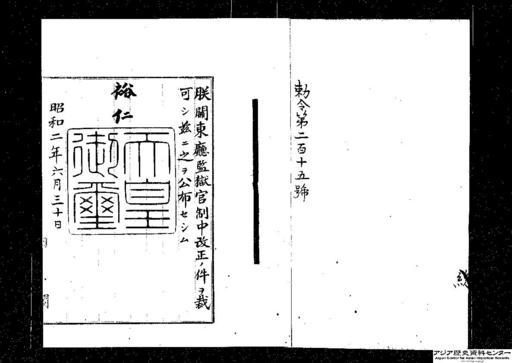 勅令第二百十五號
朕關東廳監獄官制中改正ノ件ヲ裁
可シ茲ニ之ヲ公布セシム
裕仁
天皇
御璽
昭和二年六月三十日
アジア歴史資料センター
Japan Center for Asian Historical Records